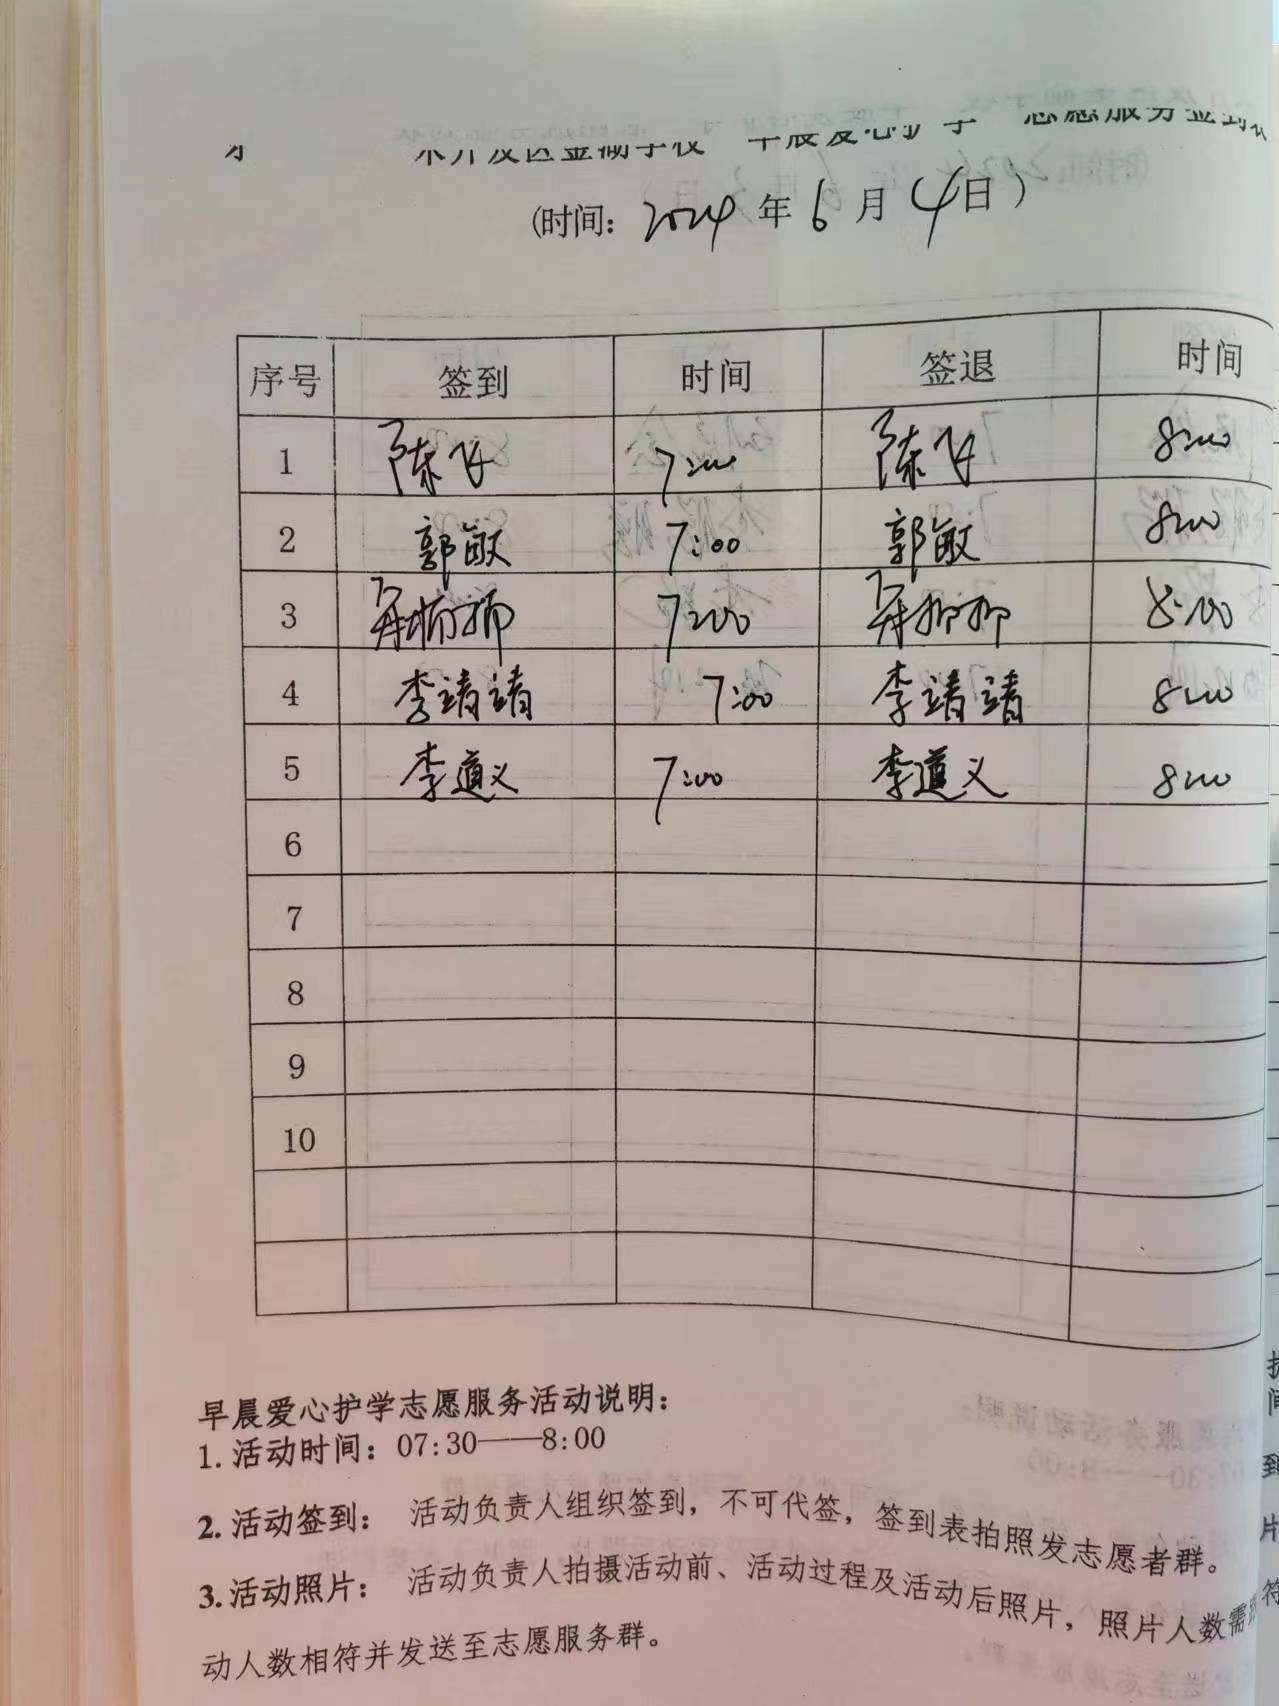 术开发区金湖学校"早晨爱心护学"志愿服务签到表
(时间: 2024 年 6 月 4 日)
序号 签到 时间 签退 时间
1 陈飞 7:00 陈飞 8:00
2 郭敏 7:00 郭敏 8:00
3 7:00 8:00
4 李靖靖 7:00 李靖靖 8:00
5 李道义 7:00 李道义 8:00
6
7
8
9
10
早晨爱心护学志愿服务活动说明:
1.活动时间:07:30——8:00
2.活动签到: 活动负责人组织签到,不可代签,签到表拍照发志愿者群。
3.活动照片: 活动负责人拍摄活动前、活动过程及活动后照片,照片人数需
动人数相符并发送至志愿服务群。